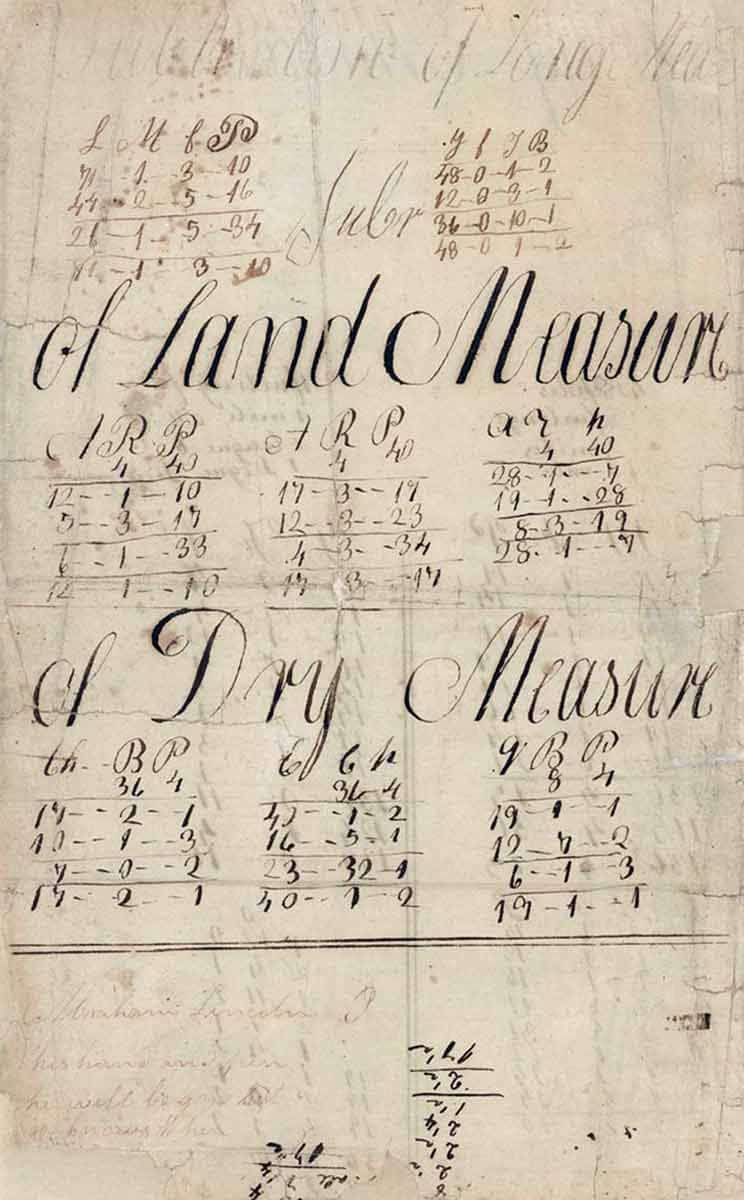 of Long Mea
L M f P
71 - 1 - 3 - 10
44 - 2 - 5 - 16
26 - 1 - 5 - 34
71 - 1 - 3 - 10
Subr
Y f I B
48 - 0 - 1 - 2
12 - 0 - 3 - 1
36 - 0 - 10 - 1
48 - 0 1 - 2
of Land Measure
A R P
4 40
12 - 1 - 10
5 - 3 - 17
6 - 1 - 33
12 1 - 10
A R P
4 40
17 - 3 - 17
12 - 3 - 23
4 - 3 - 34
17 3 - 17
a r p
4 40
28 - 1 - 7
19 - 1 - 28
8 - 3 - 19
28 - 1 - 7
of Dry Measure
Ch B P
36 4
17 - 2 - 1
10 - 1 - 3
7 - 0 - 2
17 - 2 - 1
C C p
36 4
40 - 1 - 2
16 - 5 - 1
23 - 32 - 1
40 - 1 - 2
q B P
8 4
19 1 1
12 - 7 - 2
6 - 1 - 3
19 - 1 - 1
Abraham Lincoln
his hand and pen
he will be good but
god knows When
17 1/2
2 1/2
1 1/2
2 1/4
2 1/2
2 1/2
8
17 1/2